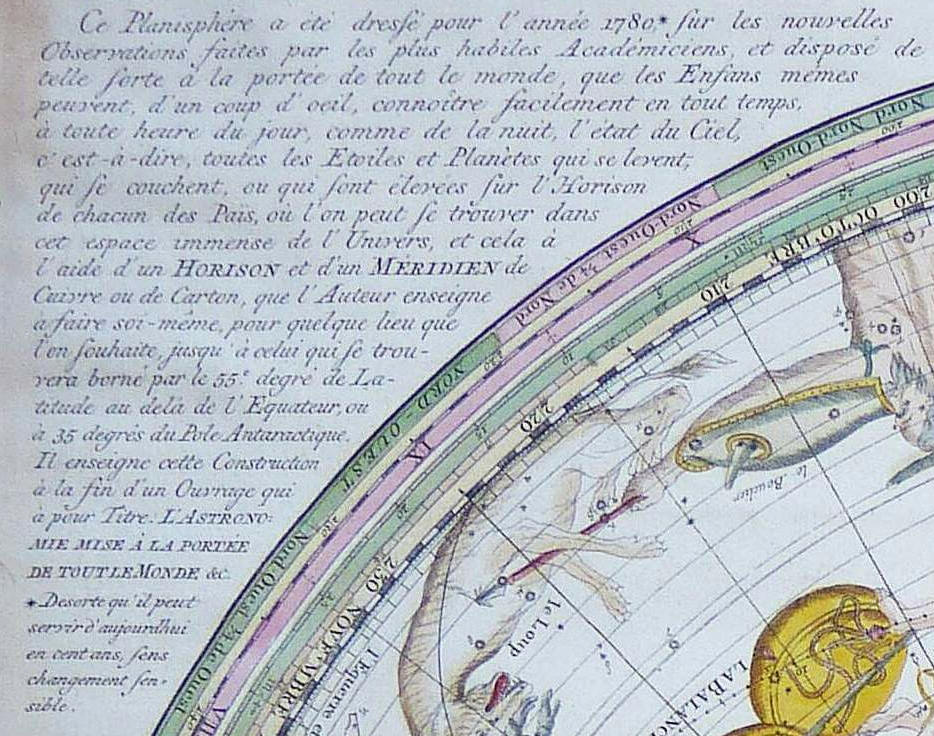 Ce Planisphère a été dressé pour l'année 1780,* sur les nouvelles
Observations faites par les plus habiles Académiciens, et disposé de
telle sorte à la portée de tout le monde, que les Enfans mêmes
peuvent, d'un coup d'oeil, connoître facilement en tout temps,
à toute heure du jour, comme de la nuit, l'état du Ciel,
c'est-à-dire, toutes les Etoiles et Planètes qui se levent;
qui se couchent, ou qui sont élevées sur l'Horison
de chacun des Païs, où l'on peut se trouver dans
cet espace immense de l'Univers, et cela à
l'aide d'un HORISON et d'un MÉRIDIEN de
Cuivre ou de Carton, que l'Auteur enseigne
a faire soi-même, pour quelque lieu que
l'on souhaite, jusqu'à celui qui se trou-
vera borné par le 55e. degré de La-
titude au delà de l'Equateur, ou
à 35 degrés du Pole Antaractique.
Il enseigne cette Construction
à la fin d'un Ouvrage qui
à pour Titre: L'ASTRONO:
MIE MISE À LA PORTÉE
DE TOUT LE MONDE &c.
*Desorte qu'il peut
servir d'aujourdhui
en cent ans, sens
changement sen-
sible.
Nord Nord-Ouest
Nord-Ouest ¼ de Nord
NORD-OUEST
Nord Ouest ¼ de Ouest
200
X
IX
VIII
200
210
220
230
OCTOBRE
NOVEMBRE
le Bouclier
le Loup
l'Equerre
LA BALANC